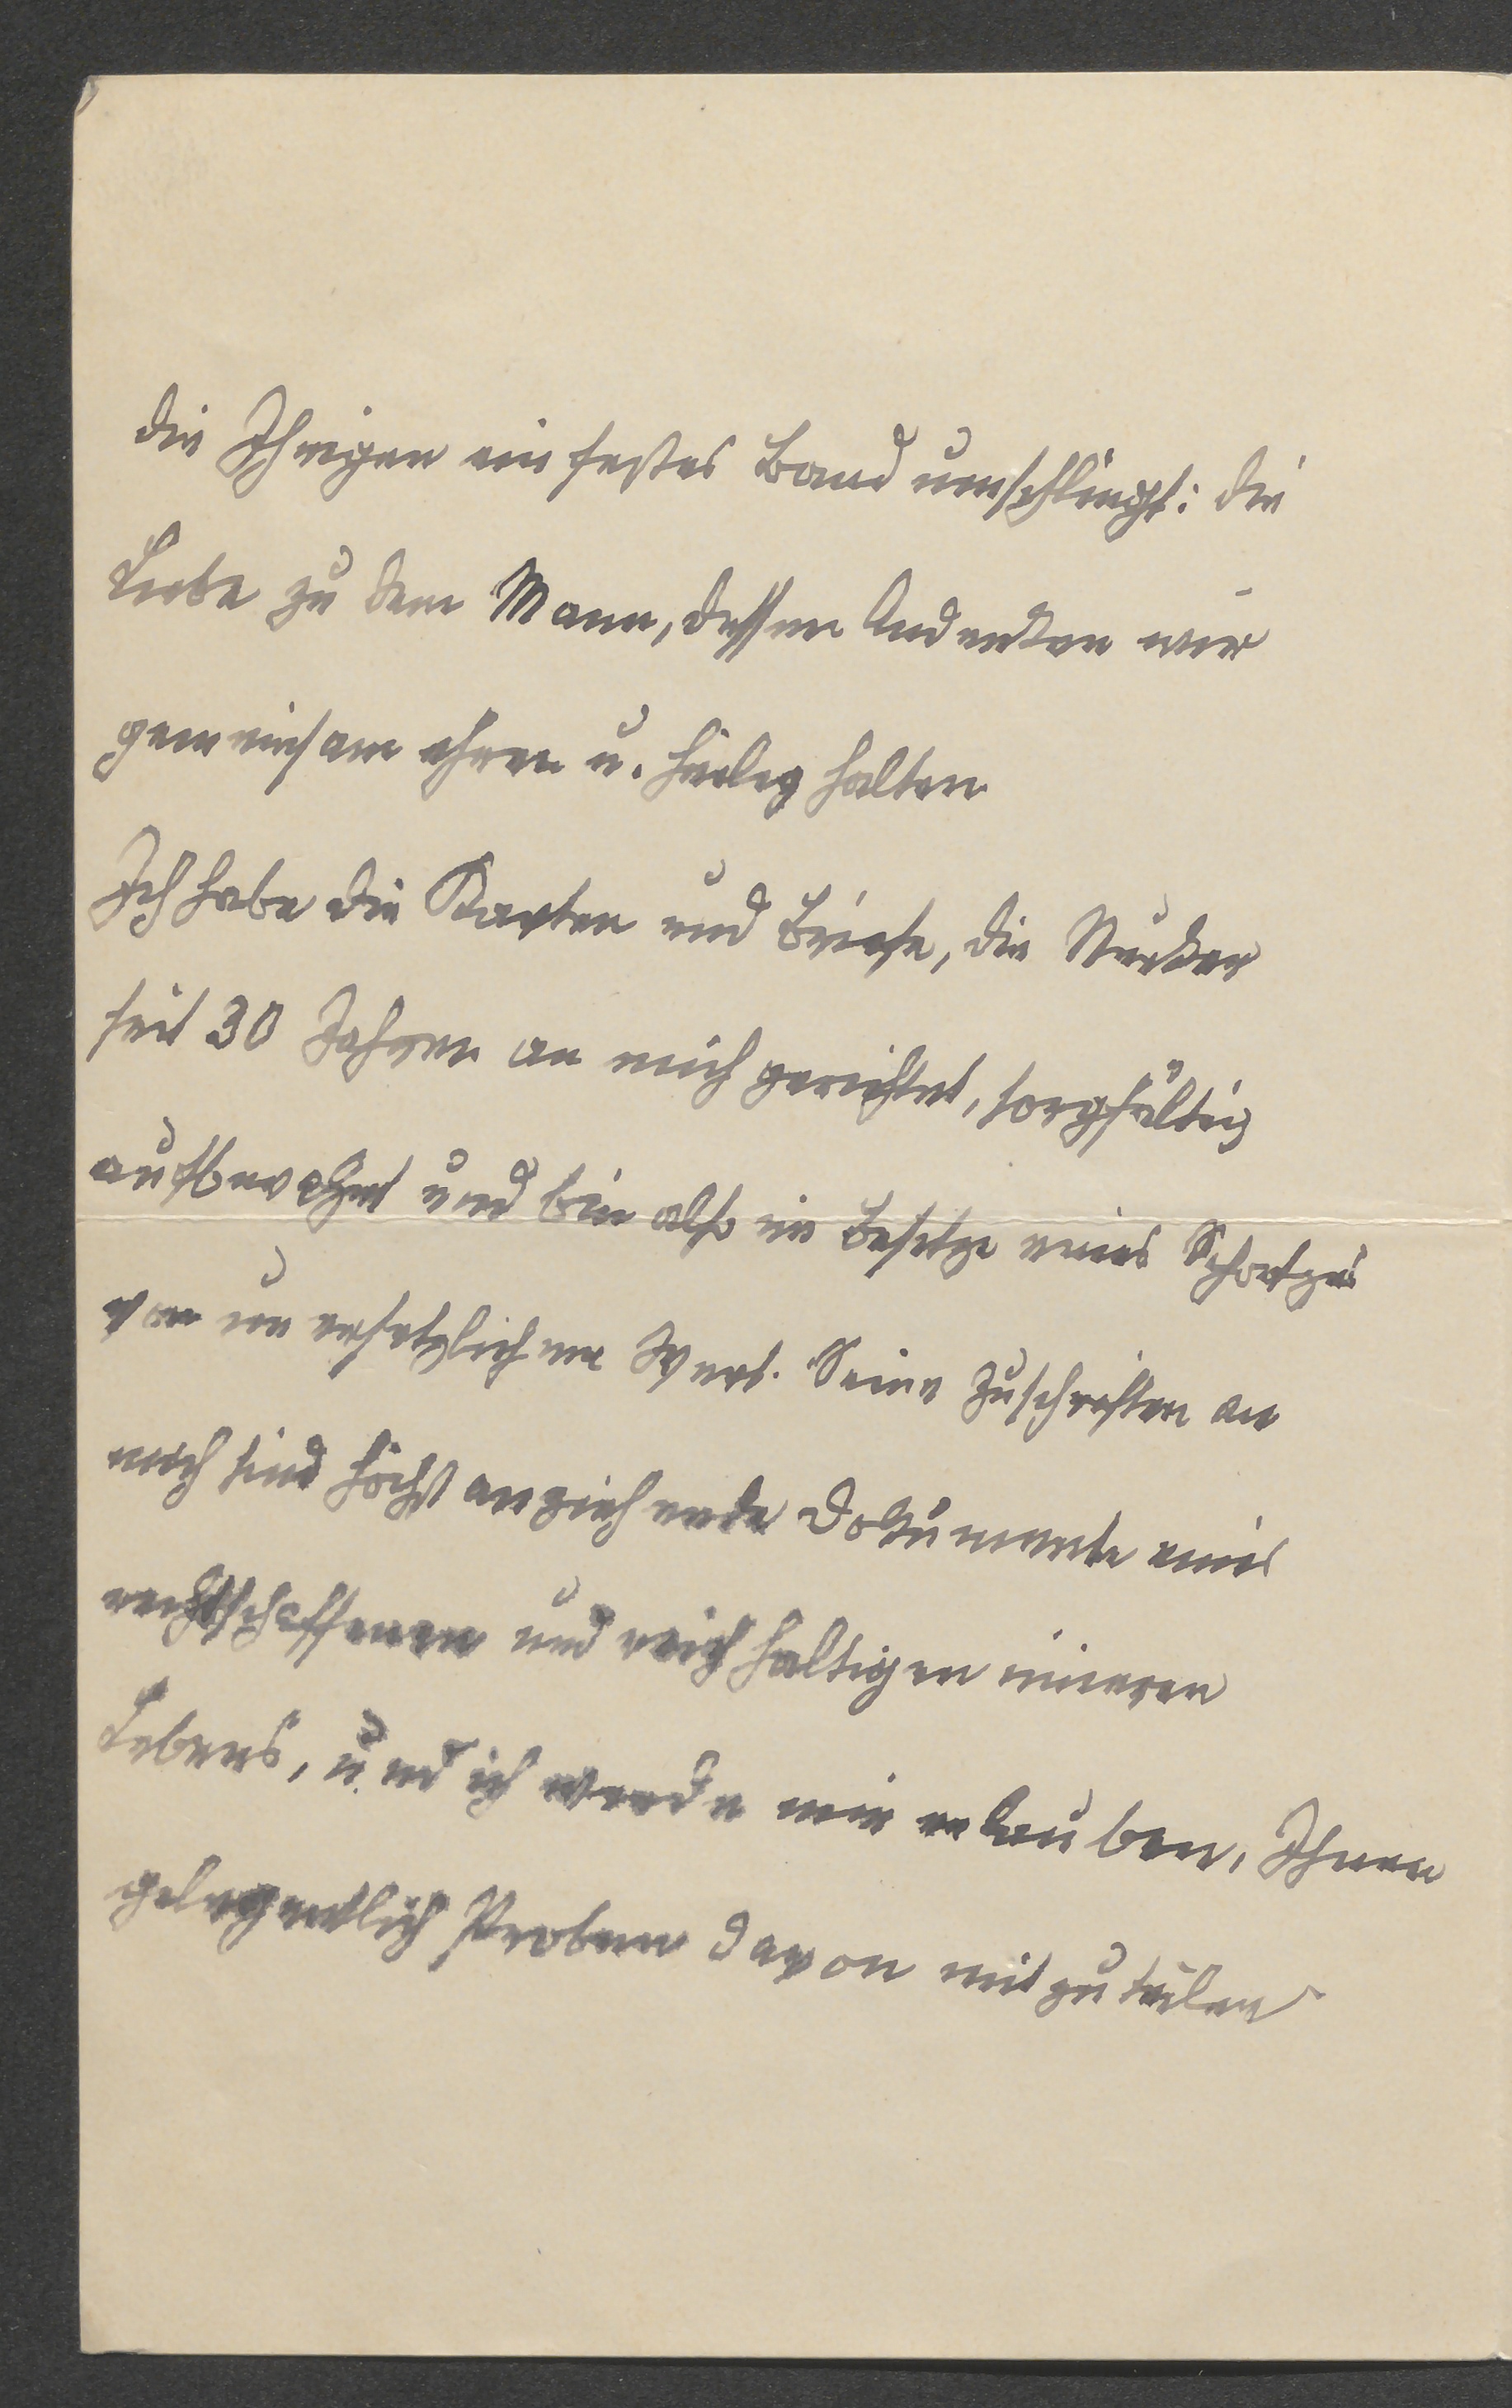 die Ihrigen ein festes Band umschlingt: die
Liebe zu dem Mann, dessen Andenken wir
gemeinsam ehren u. heilig halten
Ich habe die Karten und Briefe, die
seit 30 Jahren an mich gerichtet, sorgfältig
aufbewahrt und bin also im Besitze eines Schatzes
von unersetzlichem Wert. Seine Zuschriften an
mich sind höchst anziehende Dokumente eines
rechtschaffenen und reichhaltigen inneren
Lebens, und ich werde mir erlauben, Ihnen
gelegentlich Proben davon mitzuteilen